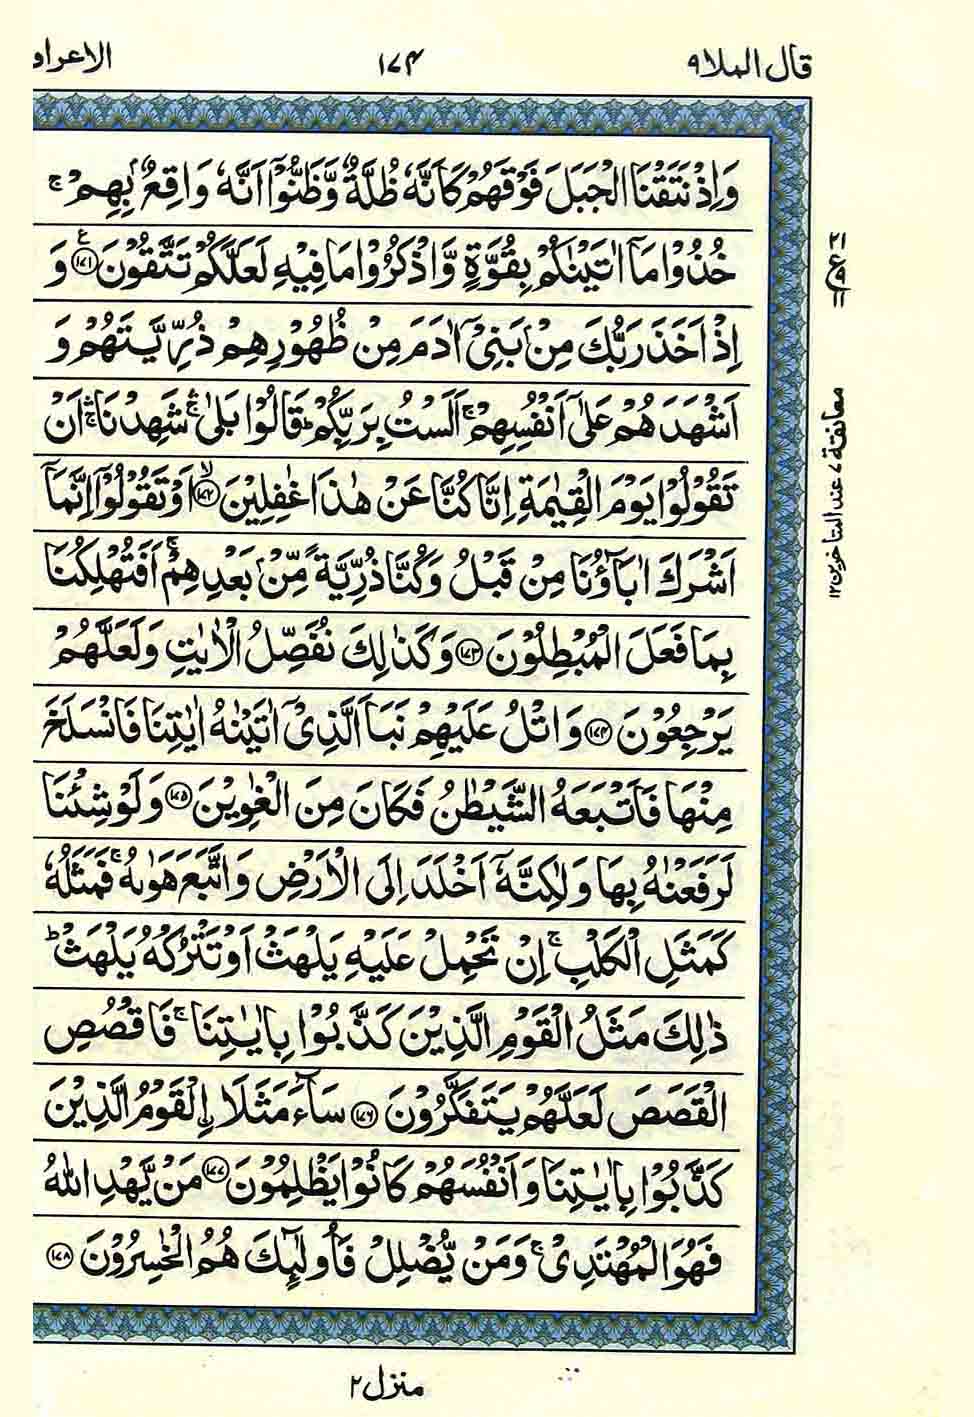 قال الملا۹ ۱۷۴ الاعراف
وَاِذْ نَتَقْنَا الْجَبَلَ فَوْقَهُمْ كَاَنَّهٗ ظُلَّةٌ وَّظَنُّوْۤا اَنَّهٗ وَاقِعٌۢ بِهِمْ ۚ
خُذُوْا مَاۤ اٰتَيْنٰكُمْ بِقُوَّةٍ وَّاذْكُرُوْا مَا فِيْهِ لَعَلَّكُمْ تَتَّقُوْنَ ﴿۱۷۱﴾ ع وَ
اِذْ اَخَذَ رَبُّكَ مِنْۢ بَنِيْۤ اٰدَمَ مِنْ ظُهُوْرِهِمْ ذُرِّيَّتَهُمْ وَ
اَشْهَدَهُمْ عَلٰۤى اَنْفُسِهِمْ ۚ اَلَسْتُ بِرَبِّكُمْ ؕ قَالُوْا بَلٰى ۛۚ شَهِدْنَا ۛۚ اَنْ
تَقُوْلُوْا يَوْمَ الْقِيٰمَةِ اِنَّا كُنَّا عَنْ هٰذَا غٰفِلِيْنَ ﴿۱۷۲﴾ۙ اَوْ تَقُوْلُوْۤا اِنَّمَاۤ
اَشْرَكَ اٰبَآؤُنَا مِنْ قَبْلُ وَكُنَّا ذُرِّيَّةً مِّنْۢ بَعْدِهِمْ ۚ اَفَتُهْلِكُنَا
بِمَا فَعَلَ الْمُبْطِلُوْنَ ﴿۱۷۳﴾ وَكَذٰلِكَ نُفَصِّلُ الْاٰيٰتِ وَلَعَلَّهُمْ
يَرْجِعُوْنَ ﴿۱۷۴﴾ وَاتْلُ عَلَيْهِمْ نَبَاَ الَّذِيْۤ اٰتَيْنٰهُ اٰيٰتِنَا فَانْسَلَخَ
مِنْهَا فَاَتْبَعَهُ الشَّيْطٰنُ فَكَانَ مِنَ الْغٰوِيْنَ ﴿۱۷۵﴾ وَلَوْ شِئْنَا
لَرَفَعْنٰهُ بِهَا وَلٰكِنَّهٗۤ اَخْلَدَ اِلَى الْاَرْضِ وَاتَّبَعَ هَوٰىهُ ۚ فَمَثَلُهٗ
كَمَثَلِ الْكَلْبِ ۚ اِنْ تَحْمِلْ عَلَيْهِ يَلْهَثْ اَوْ تَتْرُكْهُ يَلْهَثْ ؕ
ذٰلِكَ مَثَلُ الْقَوْمِ الَّذِيْنَ كَذَّبُوْا بِاٰيٰتِنَا ۚ فَاقْصُصِ
الْقَصَصَ لَعَلَّهُمْ يَتَفَكَّرُوْنَ ﴿۱۷۶﴾ سَآءَ مَثَلَا ۨالْقَوْمُ الَّذِيْنَ
كَذَّبُوْا بِاٰيٰتِنَا وَاَنْفُسَهُمْ كَانُوْا يَظْلِمُوْنَ ﴿۱۷۷﴾ مَنْ يَّهْدِ اللّٰهُ
فَهُوَ الْمُهْتَدِيْ ۚ وَمَنْ يُّضْلِلْ فَاُولٰٓئِكَ هُمُ الْخٰسِرُوْنَ ﴿۱۷۸﴾
منزل۲
۲۱
ع
۱۱
معانقة ۷ عند المتاخرین ۱۲